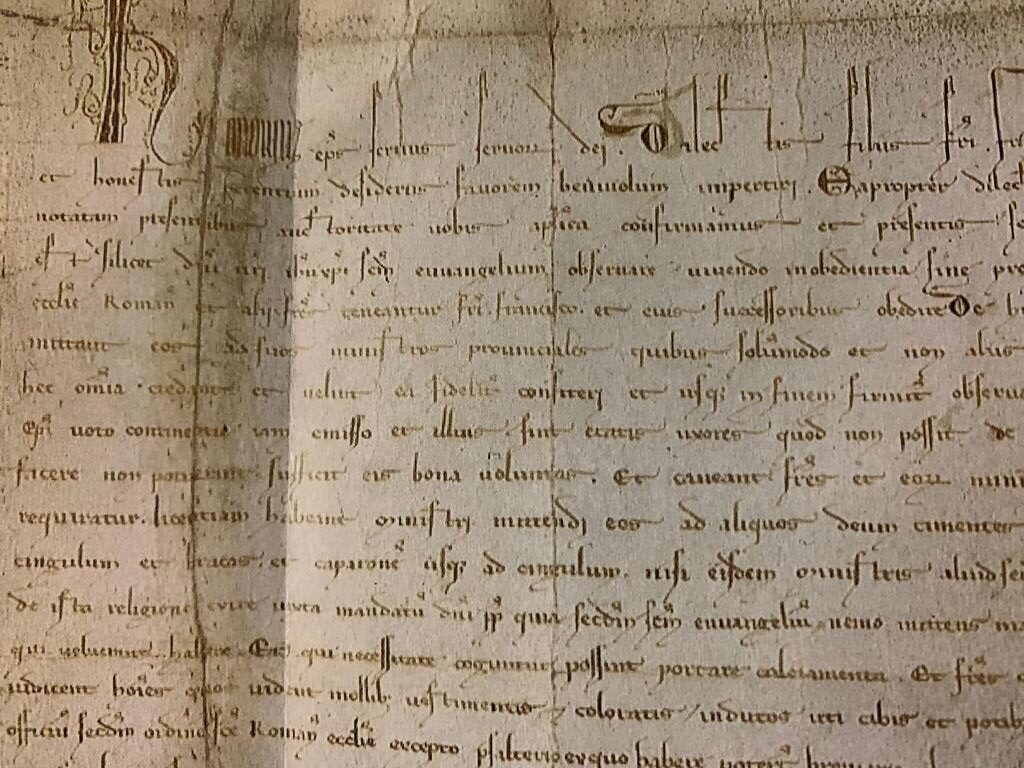 eps servus servor dei. Dilectis filiis fri.
et honestis petentium desideriis favorem benivolum impertiri. Eapropter dilec
notatam presentibus auctoritate vobis aplica confirmamus et presentis
est scilicet dni nri ihu xpi scm euuangelium observare vivendo in obedientia sine pro
ecclie Roman et alij fres teneantur fri. francisco. et eius successoribus obedire De
mittant eos ad suos ministros provinciales quibus solummodo et non aliis
hec omia credant et velint ea fidelit confiteri et usq; in finem firmit observa
Epi voto continentie iam emisso et illius sint etatis uxores quod non possit de
facere non potuerint sufficit eis bona voluntas. Et caveant fres et eor mini
requiratur. licentiam habeant ministri mittendi eos ad aliquos deum timentes
cingulum et bracas. et caparone usq; ad cingulum. nisi eisdem ministris aliud
de ista religione exire iuxta mandatu dni pp quia secdm scm euuangeliu nemo mittens ma
qui voluerint habere. Et qui necessitate coguntur possint portare calciamenta. Et fres
iudicent hoies quos vident mollib; vestimentis et coloratis indutos uti cibis et potib
officiu secdm ordine sce Roman ecclie excepto psalterio ex quo habere poterut